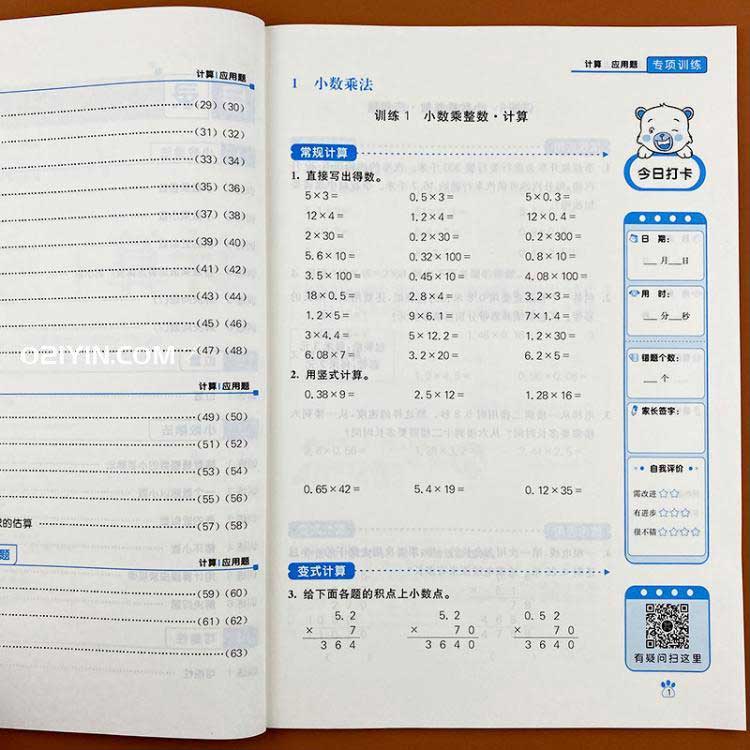 计算 应用题
(29) (30)
(31) (32)
(33) (34)
(35) (36)
(37) (38)
(39) (40)
(41) (42)
(43) (44)
(45) (46)
(47) (48)
计算 应用题
(49) (50)
(51) (52)
(53) (54)
(55) (56)
的估算 (57) (58)
题
计算 应用题
(59) (60)
(61) (62)
(63)
021YIN.COM
计算 应用题 专项训练
1 小数乘法
训练 1 小数乘整数·计算
常规计算
1. 直接写出得数。
5×3= 0.5×3= 5×0.3=
12×4= 1.2×4= 12×0.4=
2×30= 0.2×30= 0.2×300=
5.6×10= 0.32×100= 0.8×10=
3.5×100= 0.45×10= 4.08×100=
18×0.5= 2.8×4= 3.2×3=
1.2×5= 9×6.1= 7×1.4=
3×4.4= 5×12.2= 1.2×30=
6.08×7= 3.2×20= 6.2×5=
2. 用竖式计算。
0.38×9= 2.5×12= 1.28×16=
0.65×42= 5.4×19= 0.12×35=
变式计算
3. 给下面各题的积点上小数点。
5.2 5.2 0.52
× 7 × 70 × 70
364 3640 3640
今日打卡
日 期:
月 日
用 时:
分 秒
错题个数:
个
家长签字:
自我评价
需改进 ☆☆
有进步 ☆☆☆
很不错 ☆☆☆☆
有疑问扫这里
1